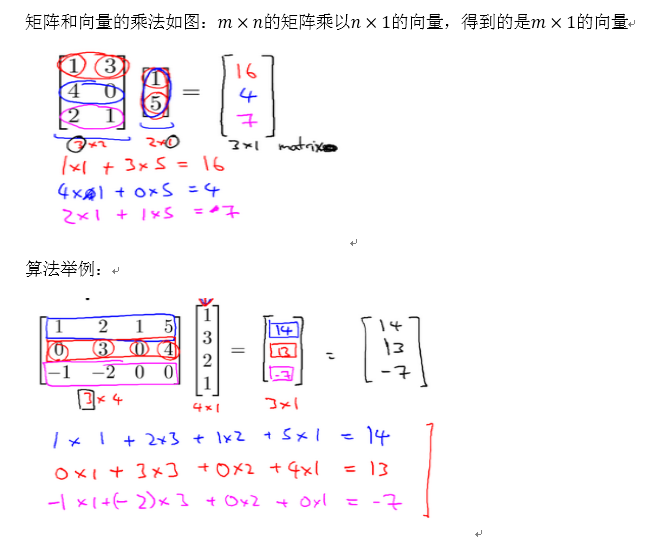 矩阵和向量的乘法如图：m × n的矩阵乘以n × 1的向量，得到的是m × 1的向量
1 3 1 16
4 0 5 = 4
2 1 7
3×2 2×1 3×1 matrix
1×1 + 3×5 = 16
4×1 + 0×5 = 4
2×1 + 1×5 = 7
算法举例：
1 2 1 5 1 14 14
0 3 0 4 3 = 13 = 13
−1 −2 0 0 2 -7 -7
1
3×4 4×1 3×1
1×1 + 2×3 + 1×2 + 5×1 = 14
0×1 + 3×3 + 0×2 + 4×1 = 13
-1×1+(-2)×3 + 0×2 + 0×1 = -7